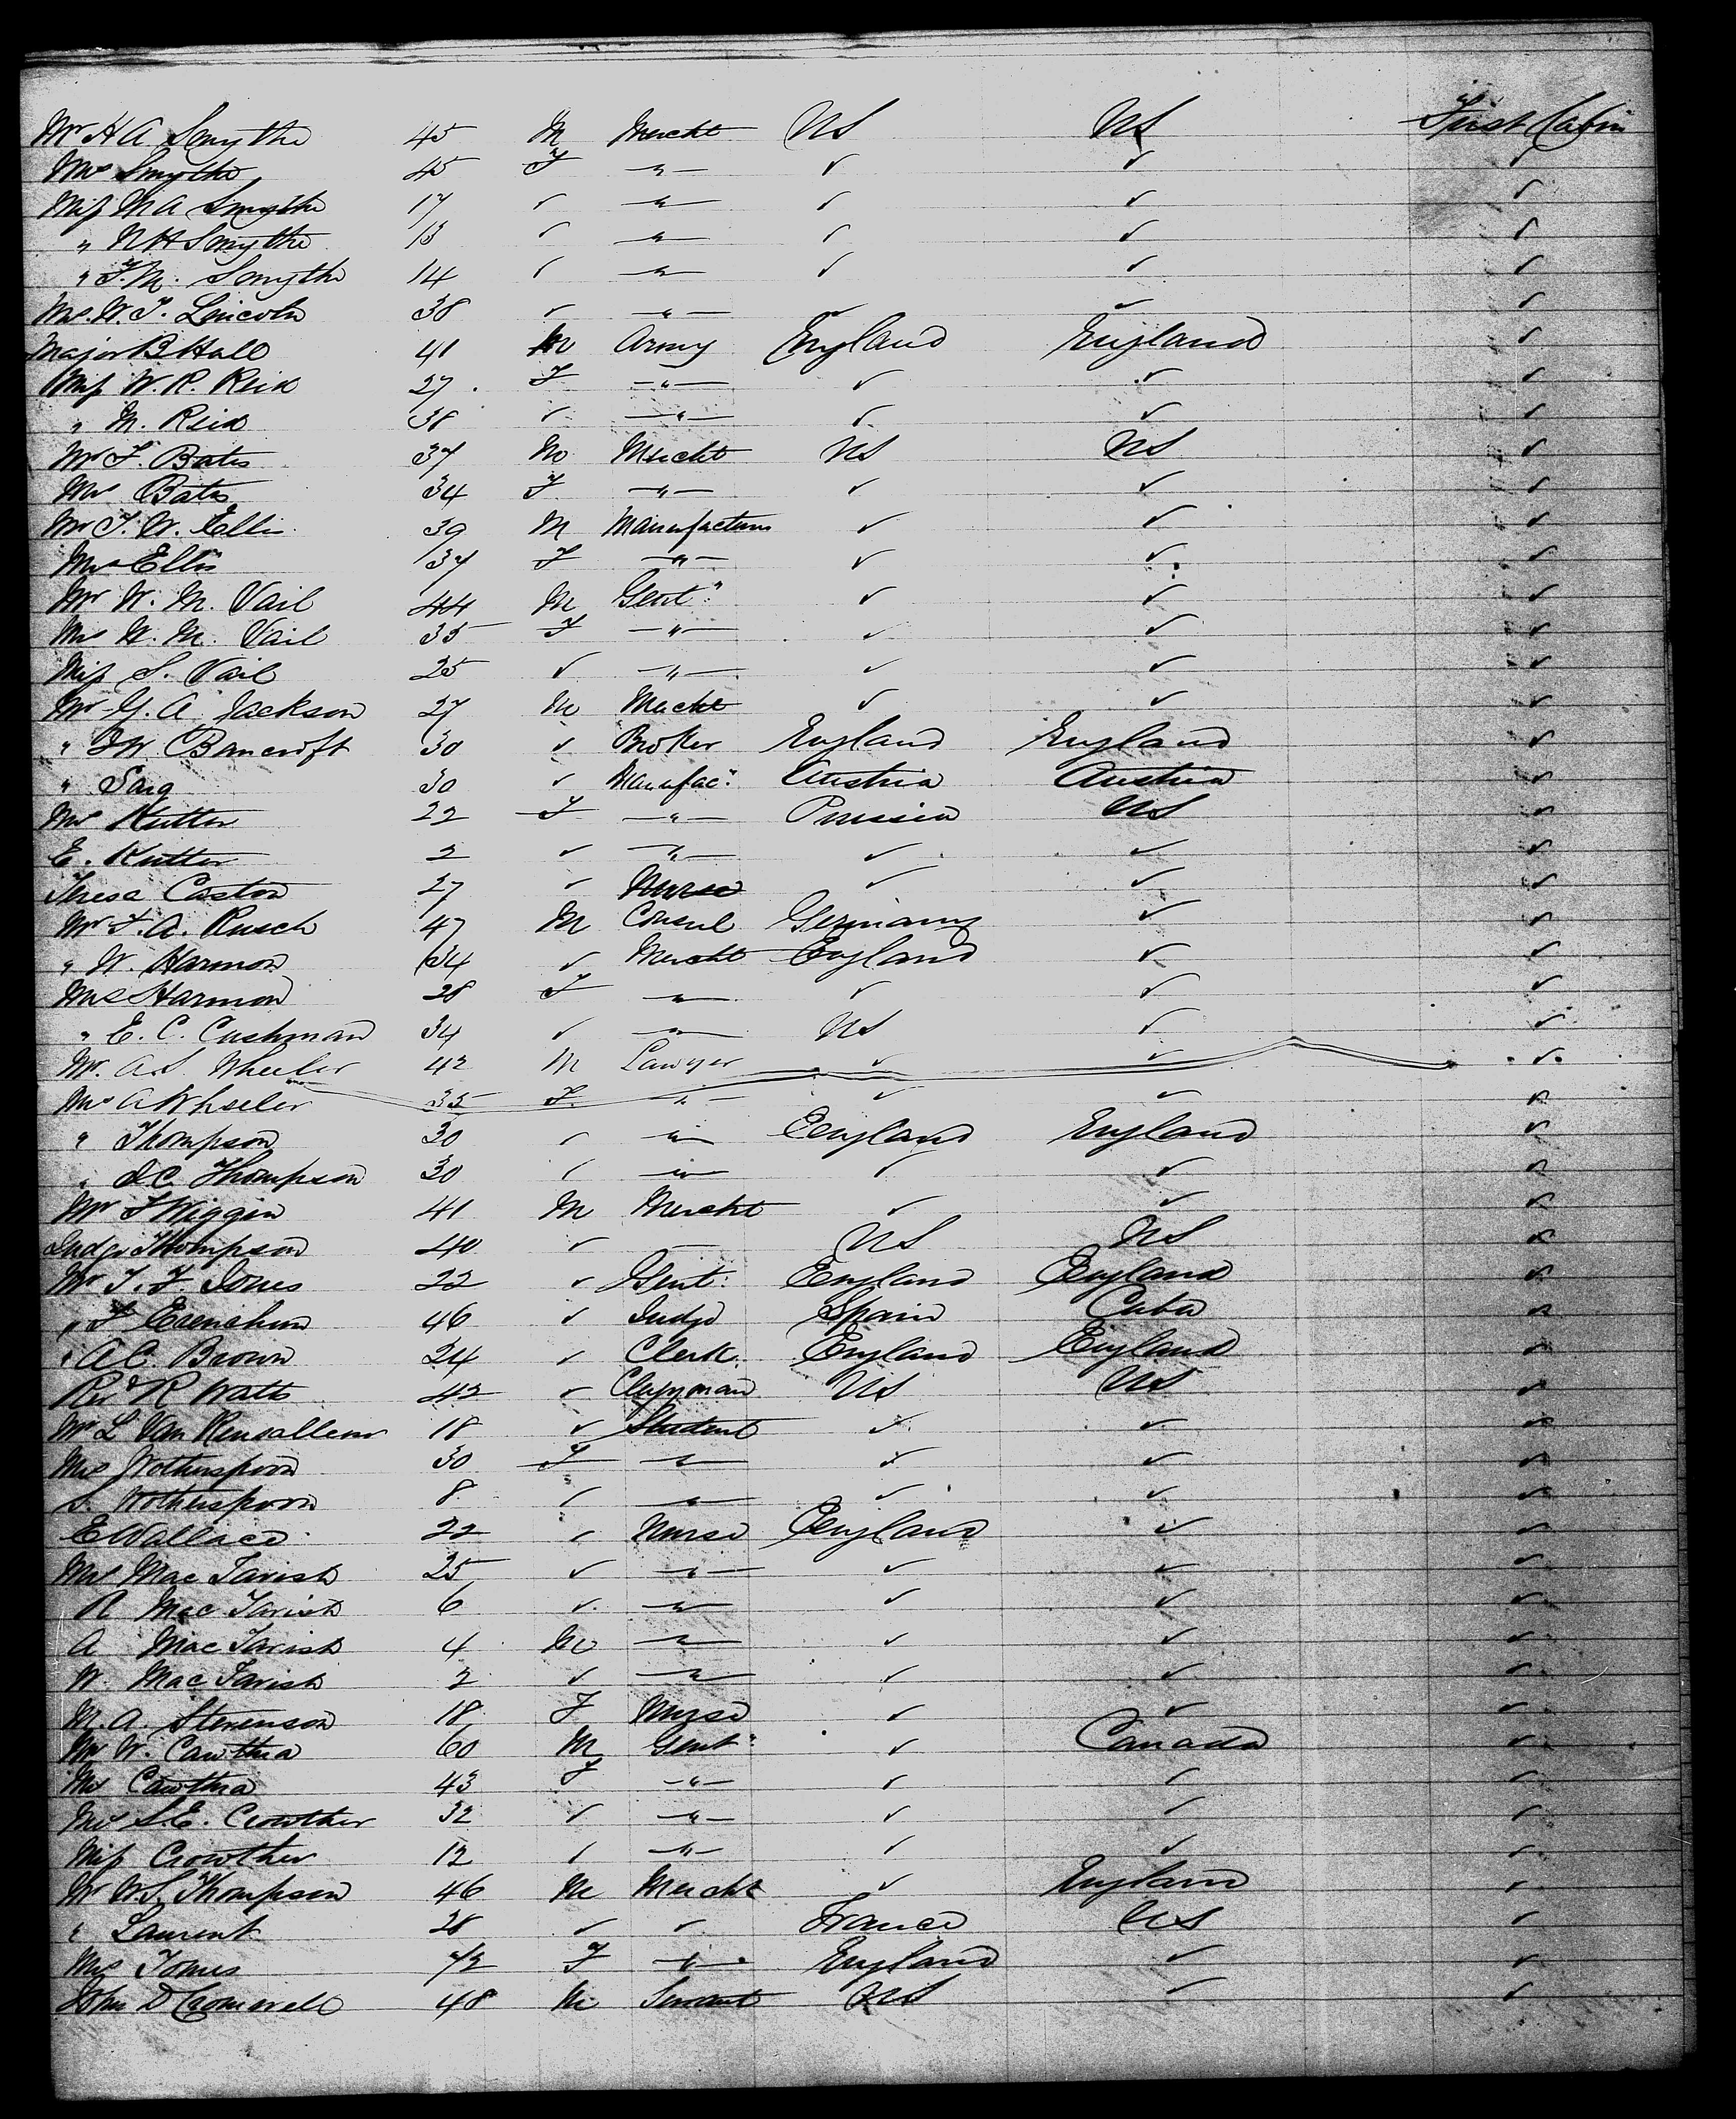 Mr H A Smythe 45 M Mercht US US First Cabin
Mrs Smythe 45 F " ✓ ✓ ✓
Miss M A Smythe 17 ✓ " ✓ ✓ ✓
" N H Smythe 13 ✓ " ✓ ✓ ✓
" F. M. Smythe 14 ✓ " ✓ ✓ ✓
Mrs. W. T. Lincoln 38 ✓ " ✓ ✓ ✓
Major B Hall 41 M Army England England ✓
Miss W. R. Reid 27 F " ✓ ✓ ✓
" M. Reid 38 ✓ " ✓ ✓ ✓
Mr F. Bates 37 M Mercht US US ✓
Mrs Bates 34 F " ✓ ✓ ✓
Mr T. W. Ellis 39 M Manufacturer ✓ ✓ ✓
Mrs Ellis 37 F " ✓ ✓ ✓
Mr W. M. Vail 44 M Gent" ✓ ✓ ✓
Mrs W. M. Vail 35 F " ✓ ✓ ✓
Miss S. Vail 25 ✓ " ✓ ✓ ✓
Mr G. A. Jackson 27 M Mercht ✓ ✓ ✓
" Bancroft 30 ✓ Broker England England ✓
" Sarg 30 ✓ Manufac" Austria Austria ✓
Mrs Kutter 22 F " Prussia US ✓
E. Kutter 2 ✓ " ✓ ✓ ✓
Theresa Caston 27 ✓ Nurse ✓ ✓ ✓
Mr F. A. Rusch 47 M Consul Germany ✓ ✓
" W. Harmon 34 ✓ Mercht England ✓ ✓
Mrs Harmon 28 F " ✓ ✓ ✓
" E. C. Cushman 34 ✓ " US ✓ ✓
Mr. A. S. Wheeler 42 M Lawyer ✓ ✓ ✓
Mrs A Wheeler 35 F " ✓ ✓ ✓
" Thompson 30 ✓ " England England ✓
" Thompson 30 ✓ " ✓ ✓ ✓
Mr F Wiggin 41 M Mercht ✓ ✓ ✓
Judge Thompson 40 ✓ — US US ✓
Mr T. F. Jones 22 ✓ Gent. England England ✓
" F 46 ✓ Judge Spain Cuba ✓
" A C. Brown 24 ✓ Clerk England England ✓
Revd R Watts 42 ✓ Clergyman US US ✓
Mr L Van Rensallear 18 ✓ Student ✓ ✓ ✓
Mrs Wotherspoon 30 F " ✓ ✓ ✓
S. Wotherspoon 8 ✓ " ✓ ✓ ✓
E Wallace 22 ✓ Nurse England ✓ ✓
Mrs Mac Tavish 25 ✓ " ✓ ✓ ✓
R Mac Tavish 6 ✓ " ✓ ✓ ✓
A Mac Tavish 4 M " ✓ ✓ ✓
W. Mac Tavish 2 ✓ " ✓ ✓ ✓
M. A. Stevenson 18 F Nurse ✓ ✓ ✓
Mr W. Cawthra 60 M Gent" ✓ Canada ✓
Mrs Cawthra 43 F " ✓ ✓ ✓
Mrs S. E. Crowther 32 ✓ " ✓ ✓ ✓
Miss Crowther 12 ✓ " ✓ ✓ ✓
Mr W. S. Thompson 46 M Mercht ✓ England ✓
" Laurent 28 ✓ ✓ France US ✓
Mrs Tomes 72 F " England ✓ ✓
John D Cromwell 48 M Servant US ✓ ✓